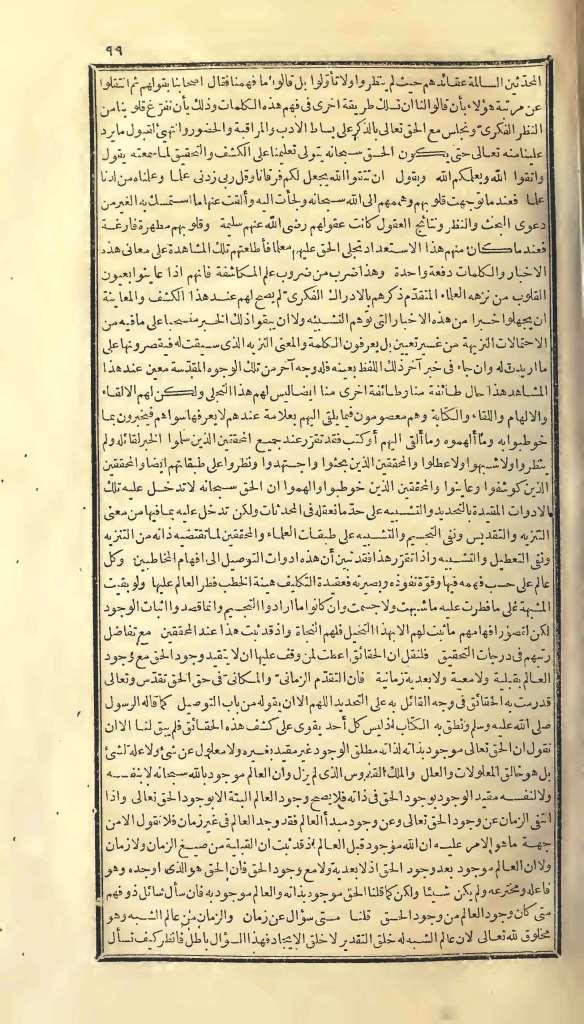 ٩٩
المحدثين السالمة عقائدهم حيث لم ينظروا ولا تأولوا بل قالوا ما فهمنا فقال أصحابنا بقولهم ثم انتقلوا
عن مرتبة هؤلاء بأن قالوا لنا أن نسلك طريقة أخرى في فهم هذه الكلمات وذلك بأن نفرغ قلوبنا من
النظر الفكري ونجلس مع الحق تعالى بالذكر على بساط الأدب والمراقبة والحضور والتهيئ لقبول ما يرد
علينا منه تعالى حتى يكون الحق سبحانه يتولى تعليمنا على الكشف والتحقيق لما سمعته يقول
واتقوا الله ويعلمكم الله ويقول ان تتقوا الله يجعل لكم فرقانا وقل ربي زدني علما وعلمناه من لدنا
علما فعندما توجهت قلوبهم وهممهم الى الله سبحانه ولجأت اليه وألقت عنها ما استمسك به الغير من
دعوى البحث والنظر ونتائج العقول كانت عقولهم رضى الله عنهم سليمة وقلوبهم مطهرة فارغة
فعندما كان منهم هذا الاستعداد تجلى الحق عليهم معلما فأطلعتهم تلك المشاهدة على معاني هذه
الاخبار والكلمات دفعة واحدة وهذا ضرب من ضروب علم المكاشفة فانهم اذا عاينوا بعيون
القلوب من نزهه العلماء المتقدم ذكرهم بالادراك الفكري لم يصح لهم عند هذا الكشف والمعاينة
ان يجهلوا خبرا من هذه الاخبار التي توهم التشبيه ولا ان يبقوا ذلك الخبر منسحبا على ما فيه من
الاحتمالات النزيهة من غير تعيين بل يعرفون الكلمة والمعنى النزيه الذي سيقت له فيقصرونها على
ما أريدت له وان جاء في خبر آخر ذلك اللفظ بعينه فله وجه آخر من تلك الوجوه المقدسة معين عند هذا
المشاهد هذا حال طائفة منا وطائفة أخرى منا أيضا ليس لهم هذا التجلي ولكن لهم الالقاء
والالهام واللقاء والكتابة وهم معصومون فيما يلقى اليهم بعلامة عندهم لا يعرفها سواهم فيخبرون بما
خوطبوا به وما ألهموه وما ألقى اليهم أو كتب فقد تقرر عند جميع المحققين الذين سلموا الخبر لقائله ولم
ينظروا ولا شبهوا ولا عطلوا والمحققين الذين بحثوا واجتهدوا ونظروا على طبقاتهم أيضا والمحققين
الذين كوشفوا وعاينوا والمحققين الذين خوطبوا وألهموا ان الحق سبحانه لا تدخل عليه تلك
الادوات المقيدة بالتحديد والتشبيه على حد ما نعقله في المحدثات ولكن تدخل عليه بما فيها من معنى
التنزيه والتقديس ونفى التجسيم والتشبيه على طبقات العلماء والمحققين لما تقتضيه ذاته من التنزيه
ونفى التعطيل والتشبيه واذا تقرر هذا فقد تبين أن هذه أدوات التوصيل الى افهام المخاطبين وكل
عالم على حسب فهمه فيها وقوة نفوذه وبصيرته فعقيدة التكليف هينة الخطب فطر العالم عليها ولو بقيت
المشبهة على ما فطرت عليه ما شبهت ولا جسمت وان كانوا ما أرادوا التجسيم وانما قصدوا اثبات الوجود
لكن لقصور افهامهم ما ثبت لهم الا بهذا التخيل فلهم النجاة واذ قد ثبت هذا عند المحققين مع تفاضل
رتبهم في درجات التحقيق فلنقل ان الحقائق أعطت لمن وقف عليها ان لا يتقيد وجود الحق مع وجود
العالم بقبلية ولا معية ولا بعدية زمانية فان التقدم الزماني والمكاني في حق الحق تقدس وتعالى
قد رمت به الحقائق في وجه القائل به على التحديد اللهم الا ان يقوله من باب التوصيل كما قاله الرسول
صلى الله عليه وسلم ونطق به الكتاب اذ ليس كل أحد يقوى على كشف هذه الحقائق فلم يبق لنا الا ان
نقول ان الحق تعالى موجود بذاته لذاته مطلق الوجود غير مقيد بغيره ولا معلول عن شئ ولا علة لشئ
بل هو خالق المعلولات والعلل والملك القدوس الذي لم يزل وان العالم موجود بالله سبحانه لا بنفسه
ولا لنفسه مقيد الوجود بوجود الحق في ذاته فلا يصح وجود العالم البتة الا بوجود الحق تعالى واذا
انتفى الزمان عن وجود الحق تعالى وعن وجود مبدأ العالم فقد وجد العالم في غير زمان فلا نقول الا من
جهة ما هو الامر عليه ان الله موجود قبل العالم اذ قد ثبت ان القبلية من صيغ الزمان ولا زمان
ولا ان العالم موجود بعد وجود الحق اذ لا بعدية ولا مع وجود الحق فان الحق هو الذي أوجده وهو
فاعله ومخترعه ولم يكن شيئا ولكن كما قلنا الحق موجود بذاته والعالم موجود به فان سأل سائل ذو فهم
متى كان وجود العالم من وجود الحق قلنا متى سؤال عن زمان والزمان من عالم الشبه وهو
مخلوق لله تعالى لان عالم الشبه له خلق التقدير لا خلق الايجاد فهذا السؤال باطل فانظر كيف تسأل